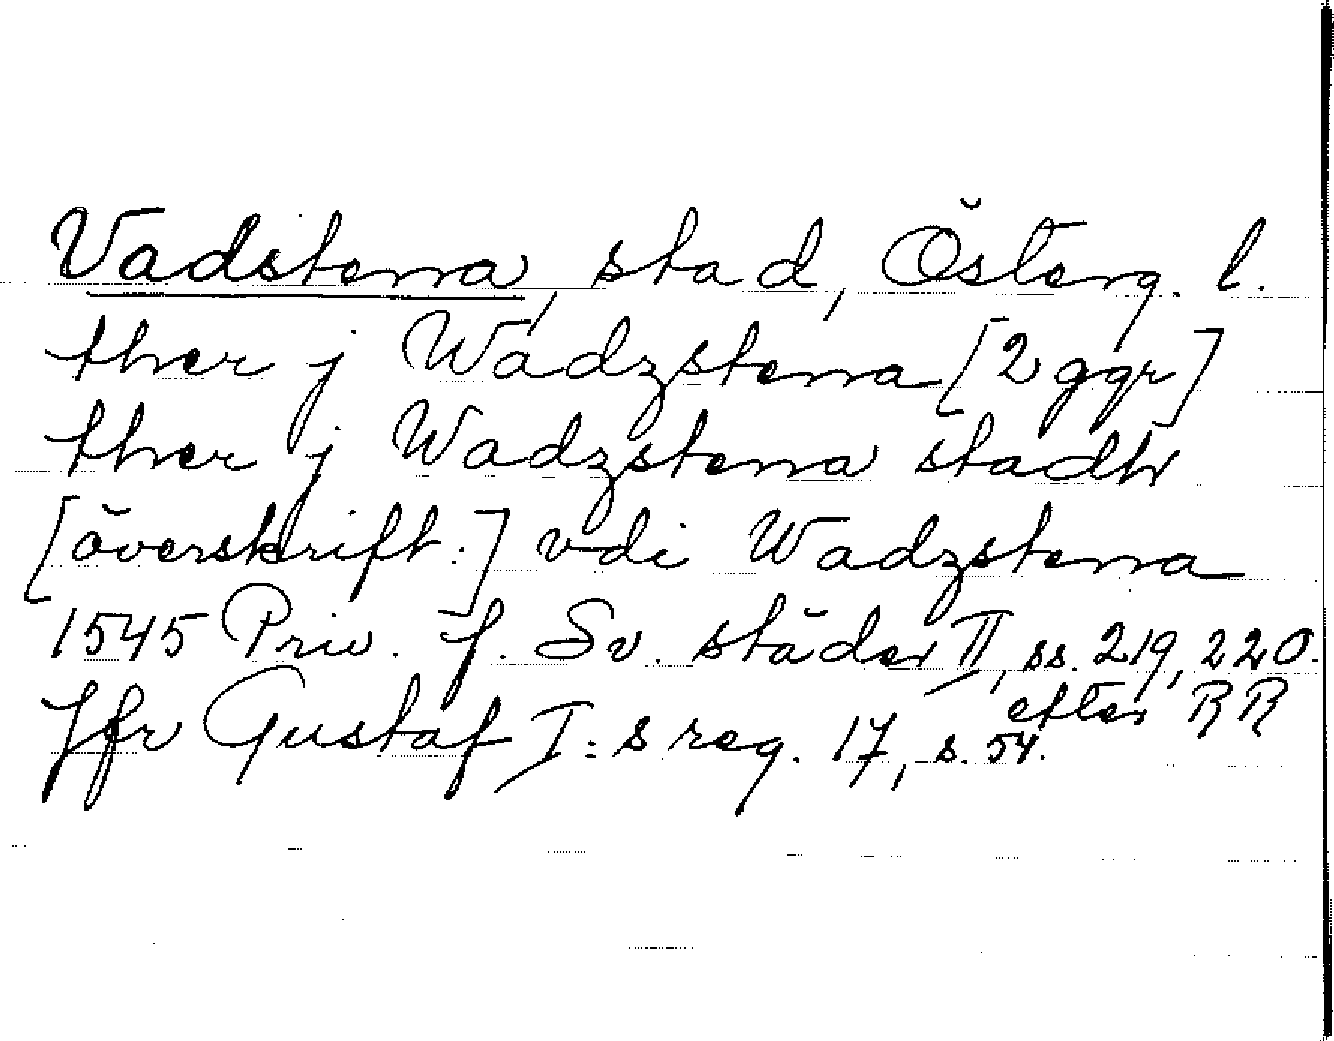 Vadstena, stad, Österg. l.
ther j Wadzstena [2 ggr]
ther j Wadzstena stadh
[överskift.] vdi Wadzstena
1545 Priv. f. Sv. städer II, ss. 219, 220.
efter RR
Jfr Gustaf I:s reg. 17, s. 54.